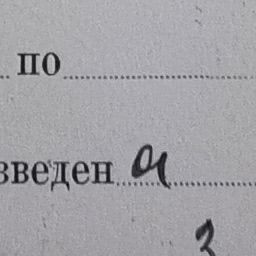 по
зведен а